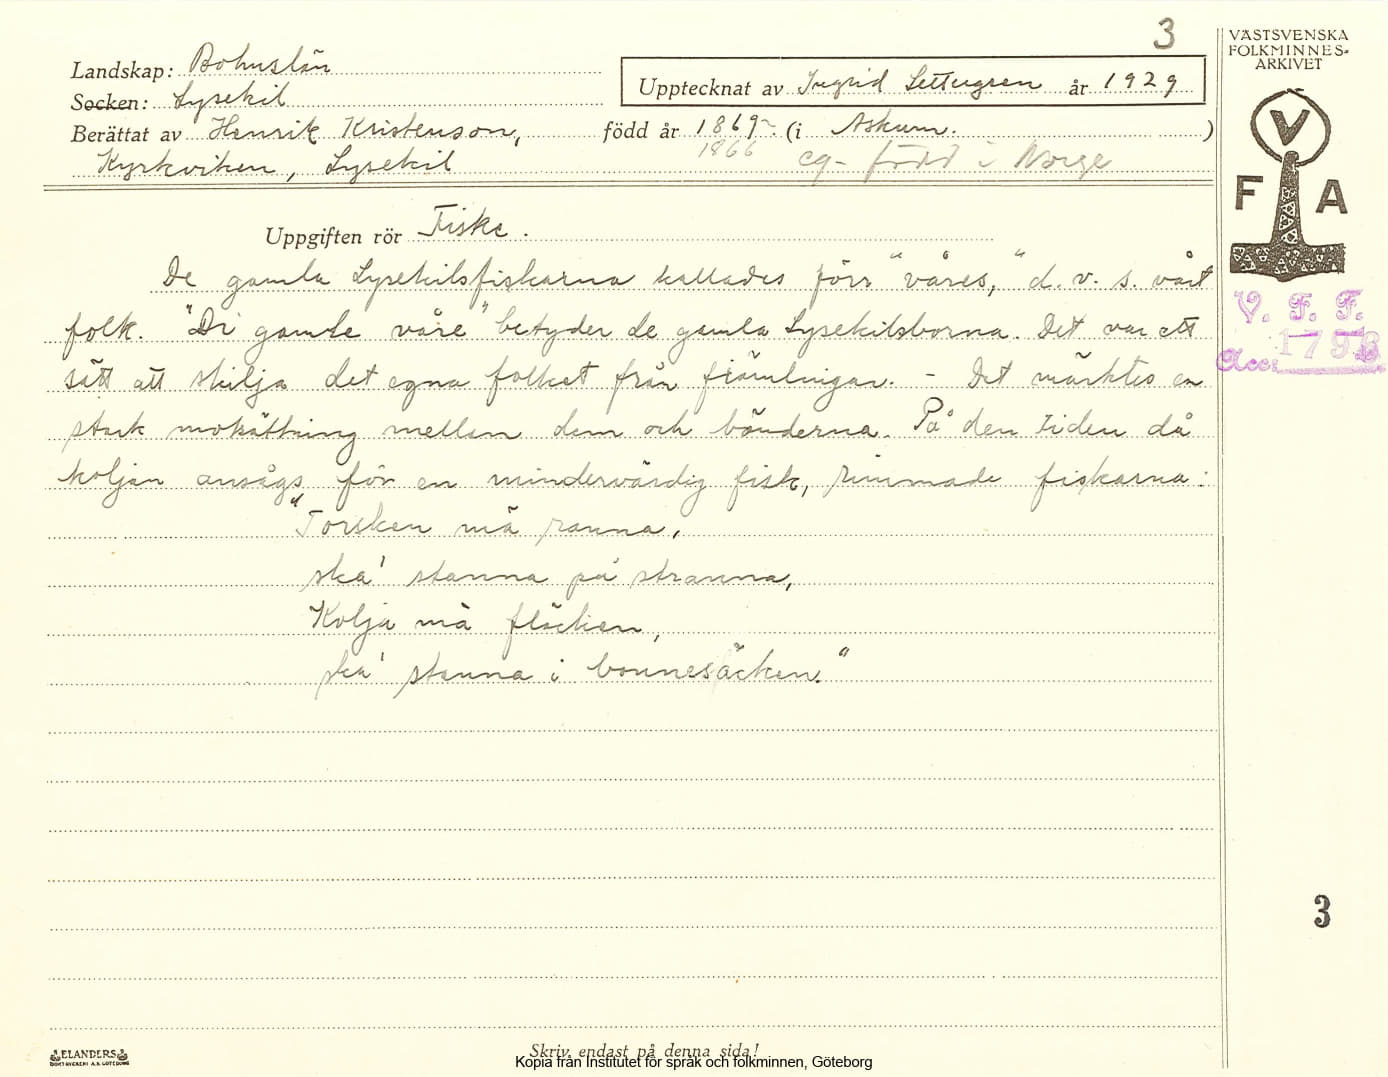 3
VÄSTSVENSKA
FOLKMINNES-
ARKIVET
Landskap: Bohuslän
Upptecknat av Ingrid Settergren år 1929
Socken: Lysekil
Berättat av Henrik Kristenson, född år 1869. (i Askum. )
1866 eg. född i Norge
Kyrkviken, Lysekil
V
F A
Uppgiften rör Fiske.
De gamla Lysekilsfiskarna kallades förr "våres," d.v.s. vårt
folk. "Di gamle våre" betyder de gamla Lysekilsborna. Det var ett
sätt att skilja det egna folket från främlingar. - Det märktes en
stark motsättning mellan dem och bönderna. På den tiden då
koljan ansågs för en mindervärdig fisk, rimmade fiskarna:
"Torsken mä ranna,
ska' stanna på stranna,
Kolja mä fläcken,
ska' stanna i bonnesäcken."
V. F. F.
Acc: 1798
3
ELANDERS
BOKTRYCKERI A.B. GÖTEBORG
Skriv endast på denna sida!
Kopia från Institutet för språk och folkminnen, Göteborg